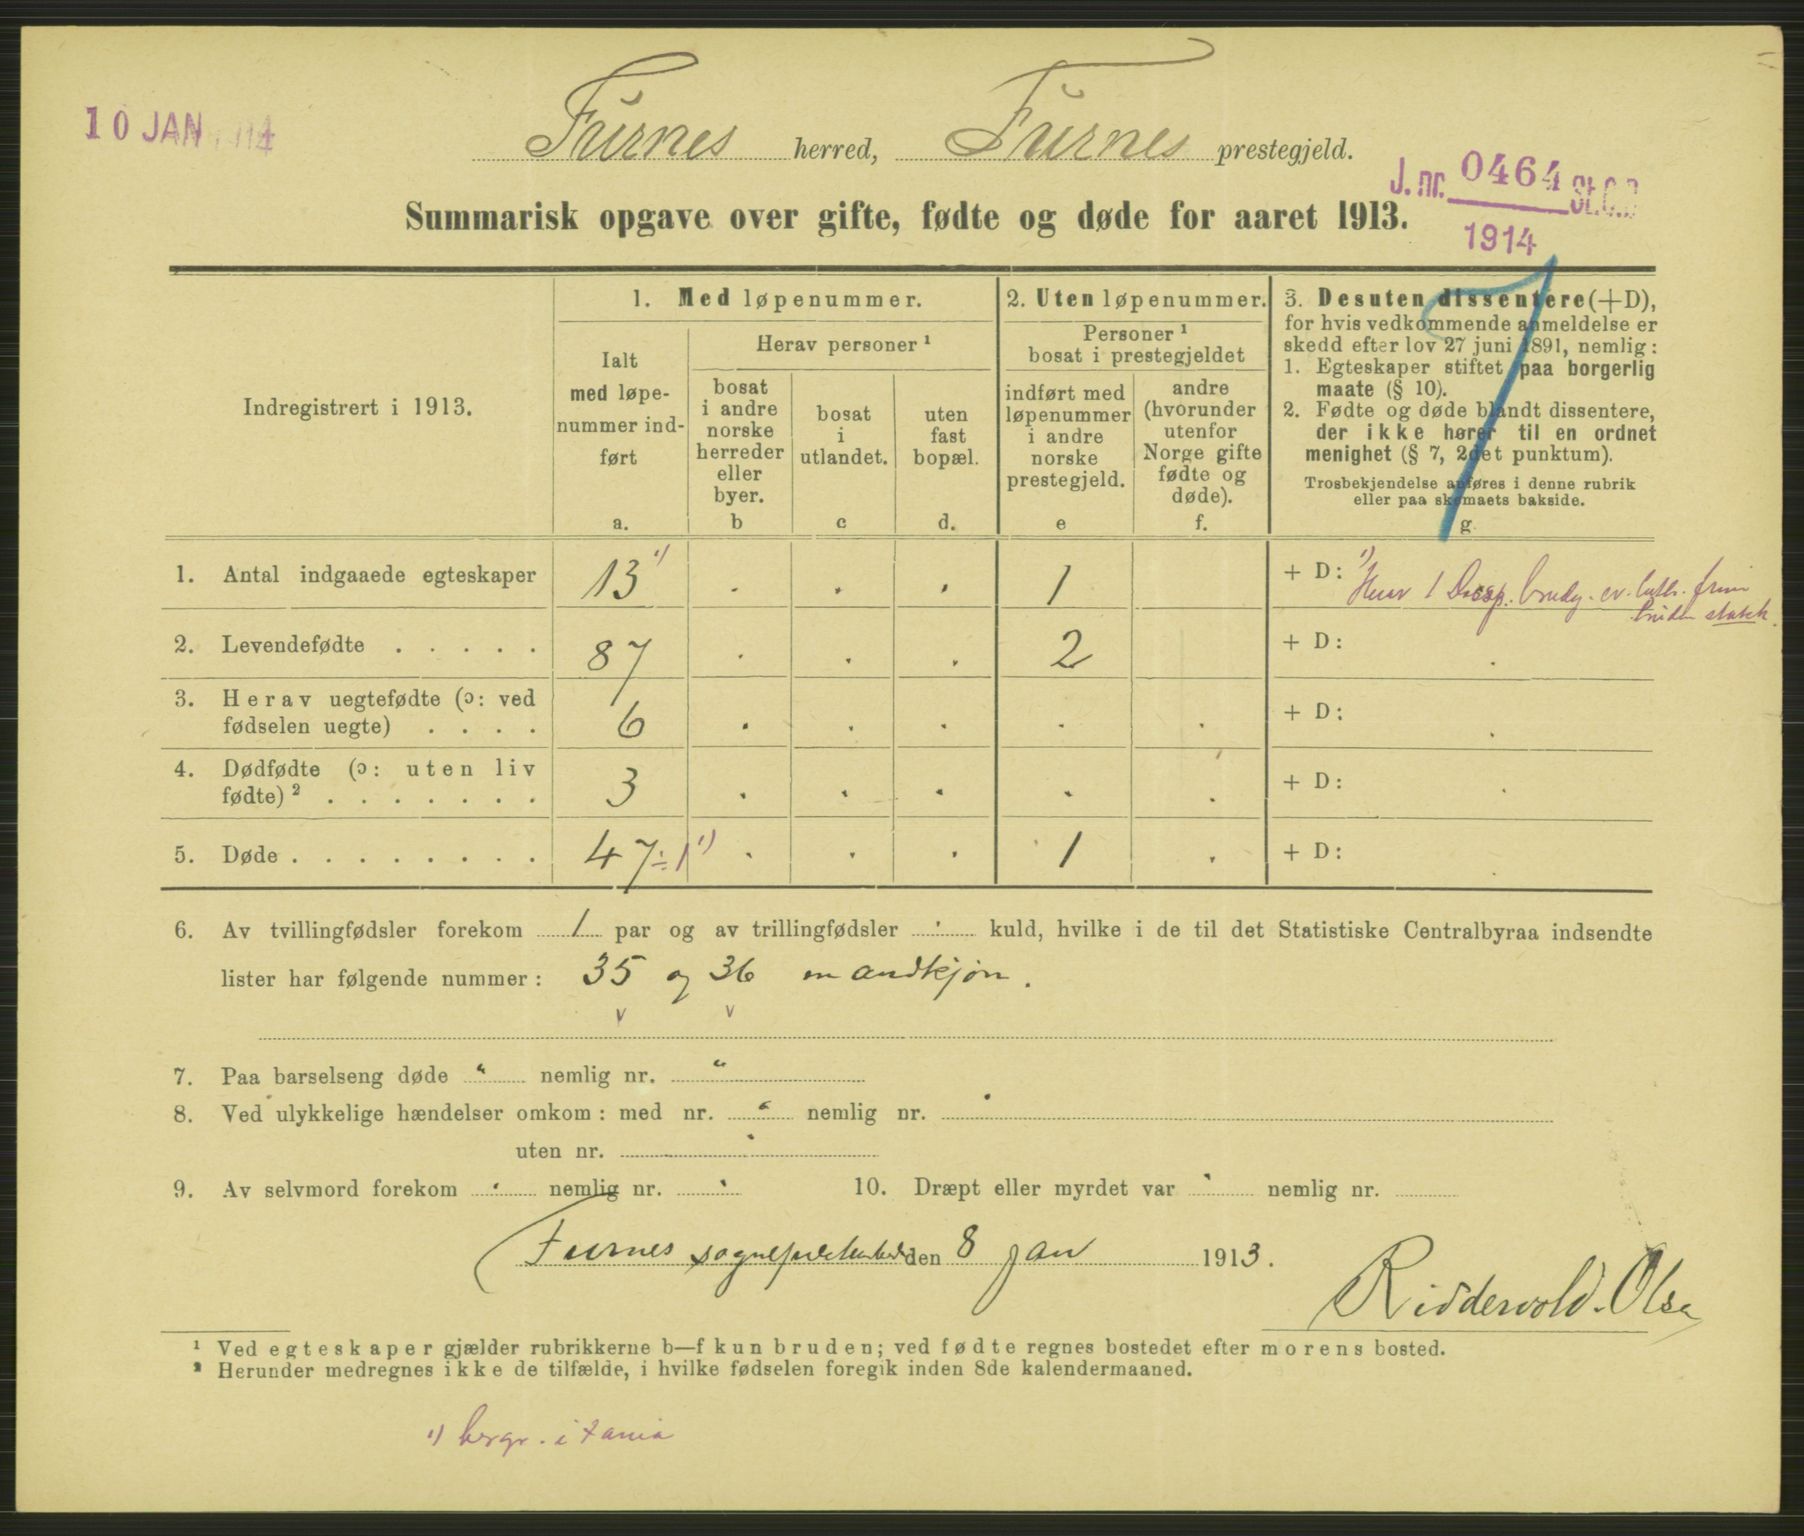 10 JAN
Furnes herred, Furnes prestegjeld.
J. nr. 0464 St.C.B
1914
Summarisk opgave over gifte, fødte og døde for aaret 1913.
Indregistrert i 1913.
1. Med løpenummer.
Ialt
med løpe-
nummer ind-
ført
a.
Herav personer ¹
bosat
i andre
norske
herreder
eller
byer.
b
bosat
i
utlandet.
c
uten
fast
bopæl.
d.
2. Uten løpenummer.
Personer ¹
bosat i prestegjeldet
indført med
løpenummer
i andre
norske
prestegjeld.
e
andre
(hvorunder
utenfor
Norge gifte
fødte og
døde).
f.
3. Desuten dissentere (+D),
for hvis vedkommende anmeldelse er
skedd efter lov 27 juni 1891, nemlig:
1. Egteskaper stiftet paa borgerlig
maate (§ 10).
2. Fødte og døde blandt dissentere,
der ikke hører til en ordnet
menighet (§ 7, 2det punktum).
Trosbekjendelse anføres i denne rubrik
eller paa skemaets bakside.
g.
1. Antal indgaaede egteskaper 13 ¹) . . . 1 + D: ¹) Herav 1 brudg. ev. luth.
bruden statsk.
2. Levendefødte . . . . . 87 . . . 2 + D: .
3. Herav uegtefødte (ɔ: ved
fødselen uegte) . . . . 6 . . . . . + D: .
4. Dødfødte (ɔ: uten liv
fødte) ² . . . . . . . 3 . . . . . + D: .
5. Døde . . . . . . . . 47 ÷1 ¹) . . . 1 . + D: .
6. Av tvillingfødsler forekom 1 par og av trillingfødsler . kuld, hvilke i de til det Statistiske Centralbyraa indsendte
lister har følgende nummer: 35 og 36 mandkjøn.
v v
7. Paa barselseng døde " nemlig nr. "
8. Ved ulykkelige hændelser omkom: med nr. " nemlig nr. "
uten nr. "
9. Av selvmord forekom " nemlig nr. " 10. Dræpt eller myrdet var " nemlig nr.
Furnes den 8 Jan 1913.
Riddervold-Olsen
¹ Ved egteskaper gjælder rubrikkerne b—f kun bruden; ved fødte regnes bostedet efter morens bosted.
² Herunder medregnes ikke de tilfælde, i hvilke fødselen foregik inden 8de kalendermaaned.
¹) begr. i